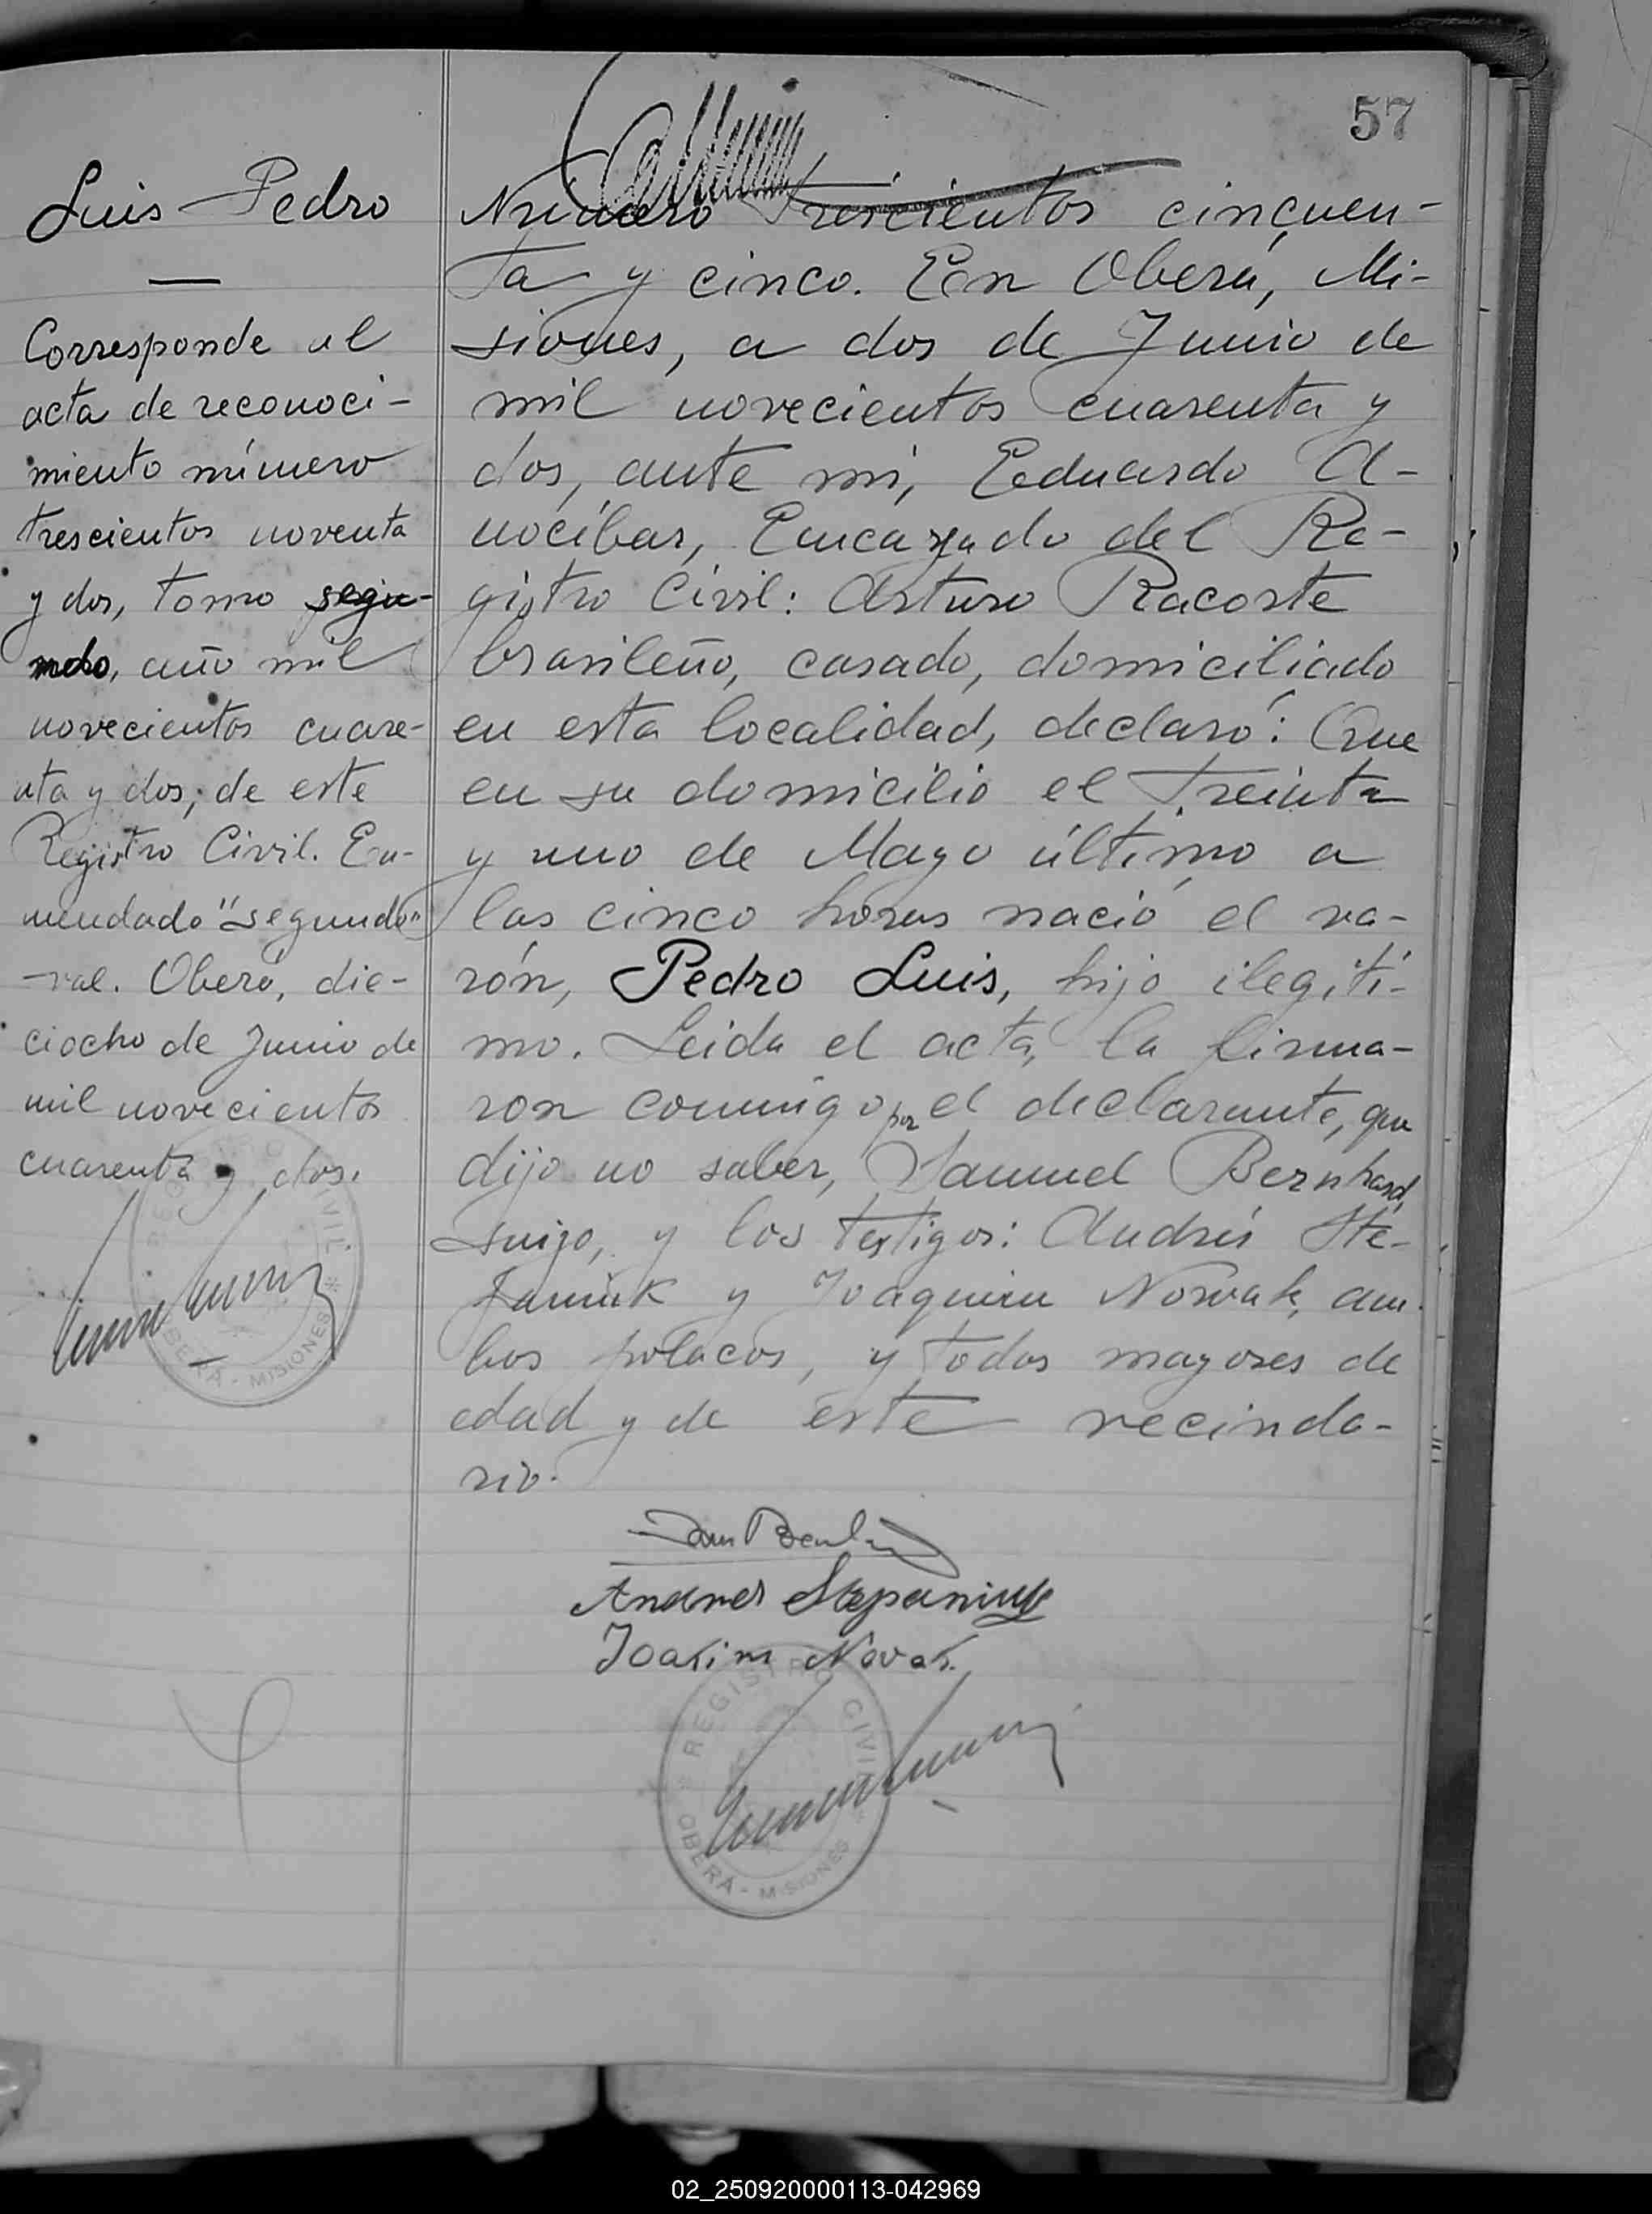 57
Luis Pedro
Corresponde al
acta de reconoci-
miento número
trescientos noventa
y dos, tomo segu-
ndo, año mil
novecientos cuare-
nta y dos, de este
Registro Civil. En-
mendado "segundo"
-val. Oberá, die-
ciocho de Junio de
mil novecientos
cuarenta y dos.
REGISTRO CIVIL
OBERÁ - MISIONES
Número Trescientos cincuen-
ta y cinco. En Oberá, Mi-
siones, a dos de Junio de
mil novecientos cuarenta y
dos, ante mí, Eduardo A-
nocíbar, Encargado del Re-
gistro Civil: Arturo Racoste
brasileño, casado, domiciliado
en esta localidad, declaró: Que
en su domicilio el treinta
y uno de Mayo último a
las cinco horas nació el va-
rón, Pedro Luis, hijo ilegíti-
mo. Leida el acta, la firma-
ron conmigo por el declarante, que
dijo no saber, Samuel Bernhard,
suizo, y los testigos: Andrés Ste-
faniuk y Joaquim Nowak, am-
bos polacos, y todos mayores de
edad y de este vecinda-
rio.
Andres Stepaniuk
Joakim Novak
REGISTRO CIVIL
OBERÁ - MISIONES
02_250920000113-042969